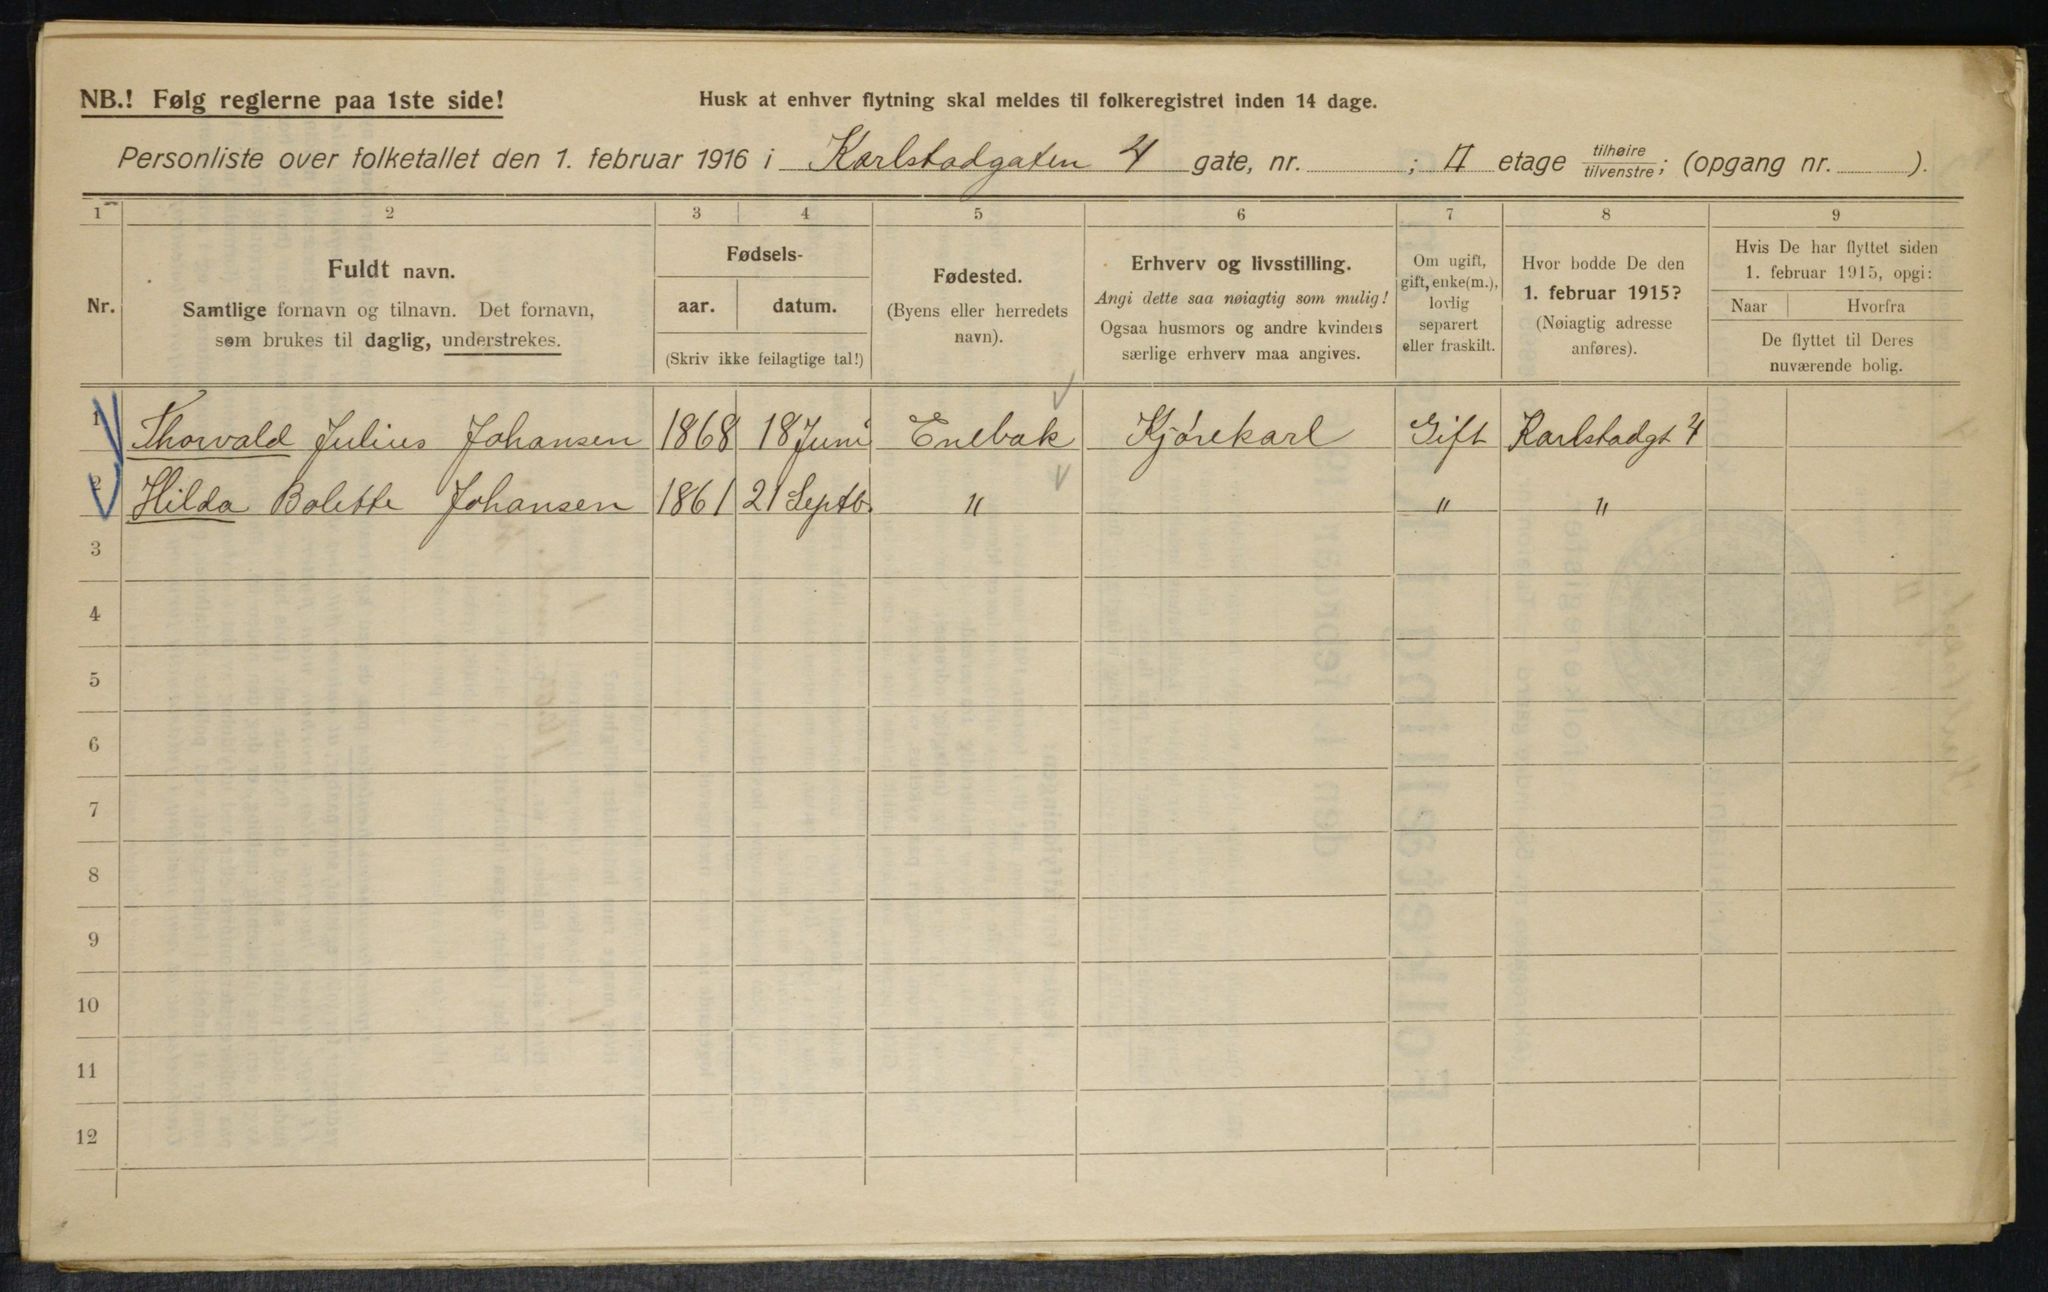 NB.! Følg reglerne paa 1ste side!
Husk at enhver flytning skal meldes til folkeregistret inden 14 dage.
Personliste over folketallet den 1. februar 1916 i Karlstadgaten 4 gate, nr. ; II etage tilhøire/tilvenstre; (opgang nr. ).
1 2 3 4 5 6 7 8 9
Nr.
Fuldt navn.
Samtlige fornavn og tilnavn. Det fornavn,
som brukes til daglig, understrekes.
Fødsels-
aar. datum.
(Skriv ikke feilagtige tal!)
Fødested.
(Byens eller herredets
navn).
Erhverv og livsstilling.
Angi dette saa nøiagtig som mulig!
Ogsaa husmors og andre kvinders
særlige erhverv maa angives.
Om ugift,
gift, enke(m.),
lovlig
separert
eller fraskilt.
Hvor bodde De den
1. februar 1915?
(Nøiagtig adresse
anføres).
Hvis De har flyttet siden
1. februar 1915, opgi:
Naar Hvorfra
De flyttet til Deres
nuværende bolig.
1 Thorvald Julius Johansen 1868 18 Juni Enebak Kjørekarl Gift Karlstadgt 4
2 Hilda Bolette Johansen 1861 21 Septb. " " "
3
4
5
6
7
8
9
10
11
12